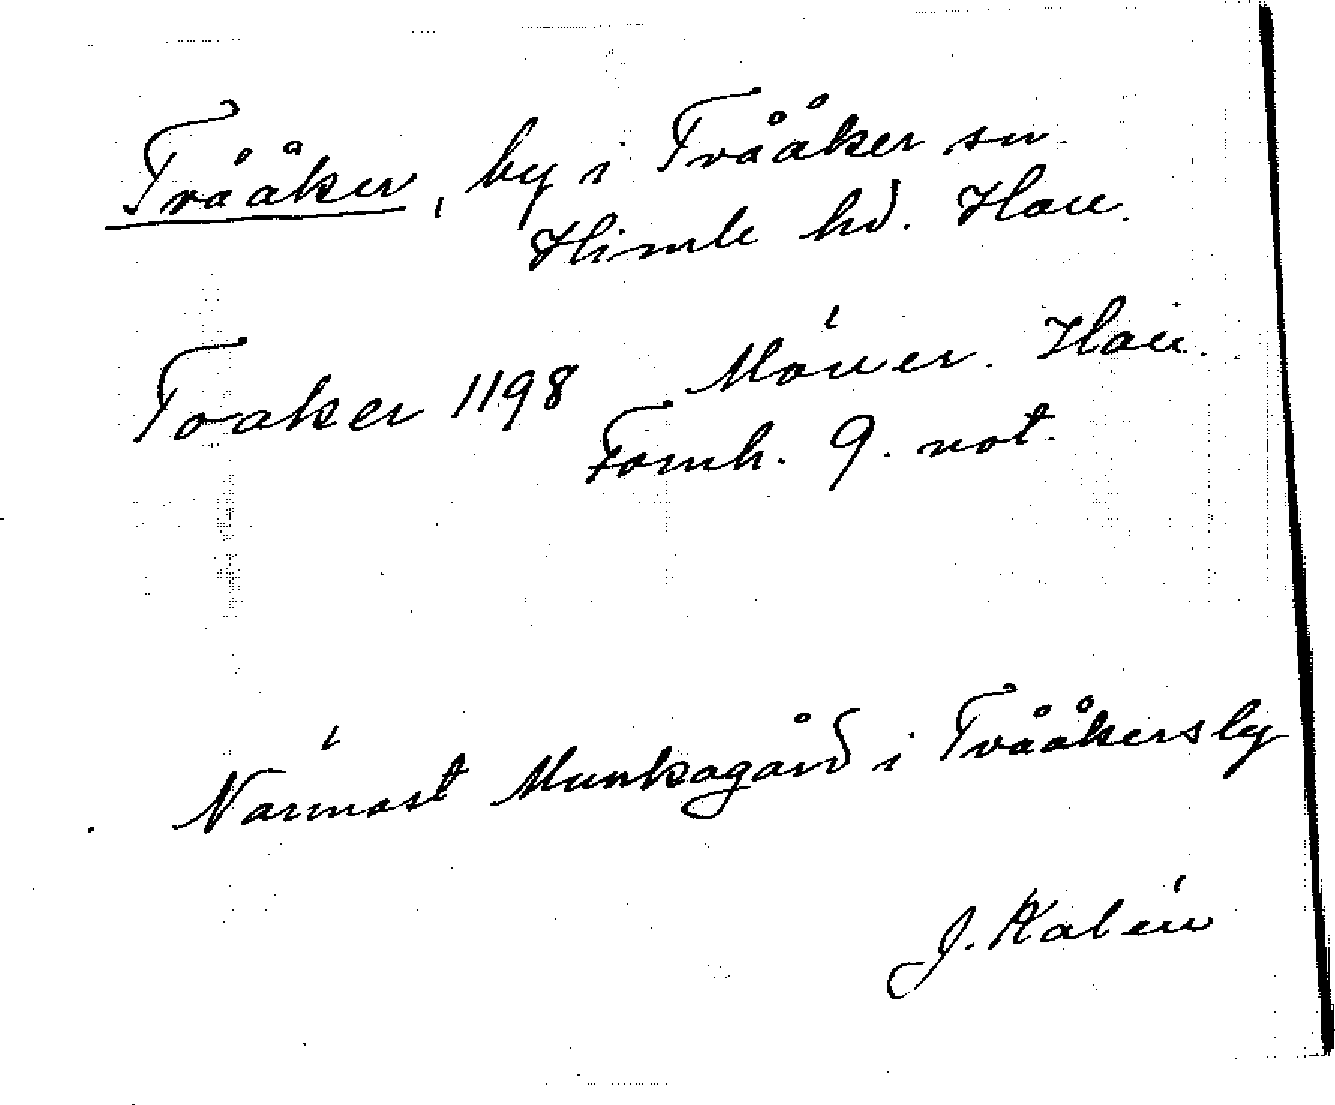 Tvååker, by i Tvååker sn
Himle hd. Hall.
Toaker 1198 Möller. Hall.
Fornh. 9. not.
Närmast Munkagård i Tvååkersby
J. Kalén